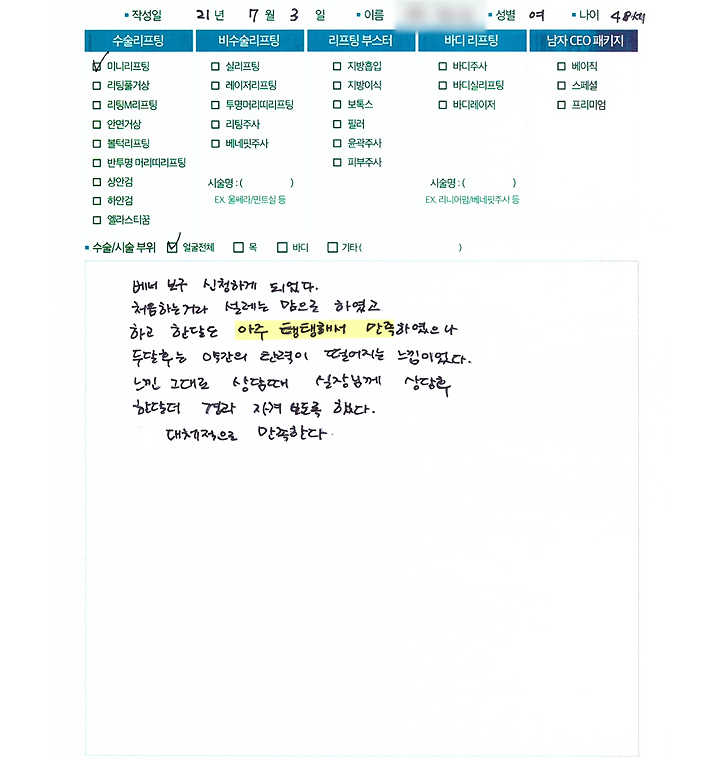 ▪ 작성일 21 년 7 월 3 일 ▪ 이름 ▪ 성별 여 ▪ 나이 48세
수술리프팅 비수술리프팅 리프팅 부스터 바디 리프팅 남자 CEO 패키지
미니리프팅 실리프팅 지방흡입 바디주사 베이직
리팅풀거상 레이저리프팅 지방이식 바디실리프팅 스페셜
리팅M리프팅 투명머리띠리프팅 보톡스 바디레이저 프리미엄
안면거상 리팅주사 필러
볼턱리프팅 베네핏주사 윤곽주사
반투명 머리띠리프팅 피부주사
상안검 시술명 : ( ) 시술명 : ( )
하안검 EX. 울쎄라/민트실 등 EX. 리니어펌/베네핏주사 등
엘라스티꿈
▪ 수술/시술 부위 얼굴전체 목 바디 기타 ( )
베너 보구 신청하게 되었다.
처음하는거라 설레는 맘으로 하였고
하고 한달은 아주 탱탱해서 만족하였으나
두달후는 약간의 탄력이 떨어지는 느낌이었다.
느낀 그대로 상담때 실장님께 상담후
한달더 경과 지켜 보도록 했다.
대체적으로 만족한다.